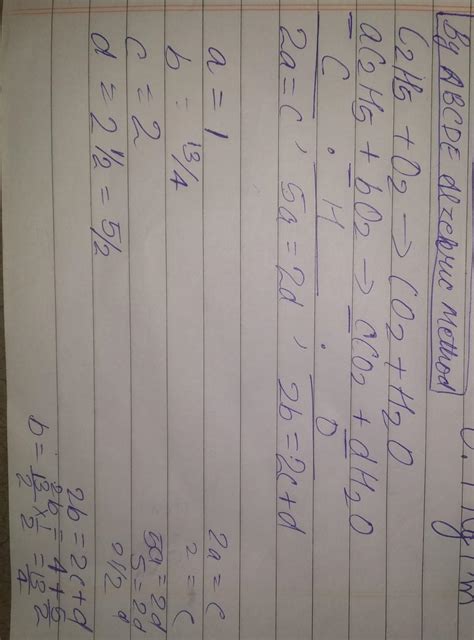 By ABCDE Alzebric Method
C2H5 + O2 → CO2 + H2O
aC2H5 + bO2 → cCO2 + dH2O
C . H . O
2a = c , 5a = 2d , 2b = 2c + d
a = 1
b = 13/4
c = 2
d = 2 1/2 = 5/2
2a = c
2 = c
5a = 2d
5 = 2d
2b = 2c + d
2b = 4 + 5/2
b = 13/2 × 1/2 = 13/4